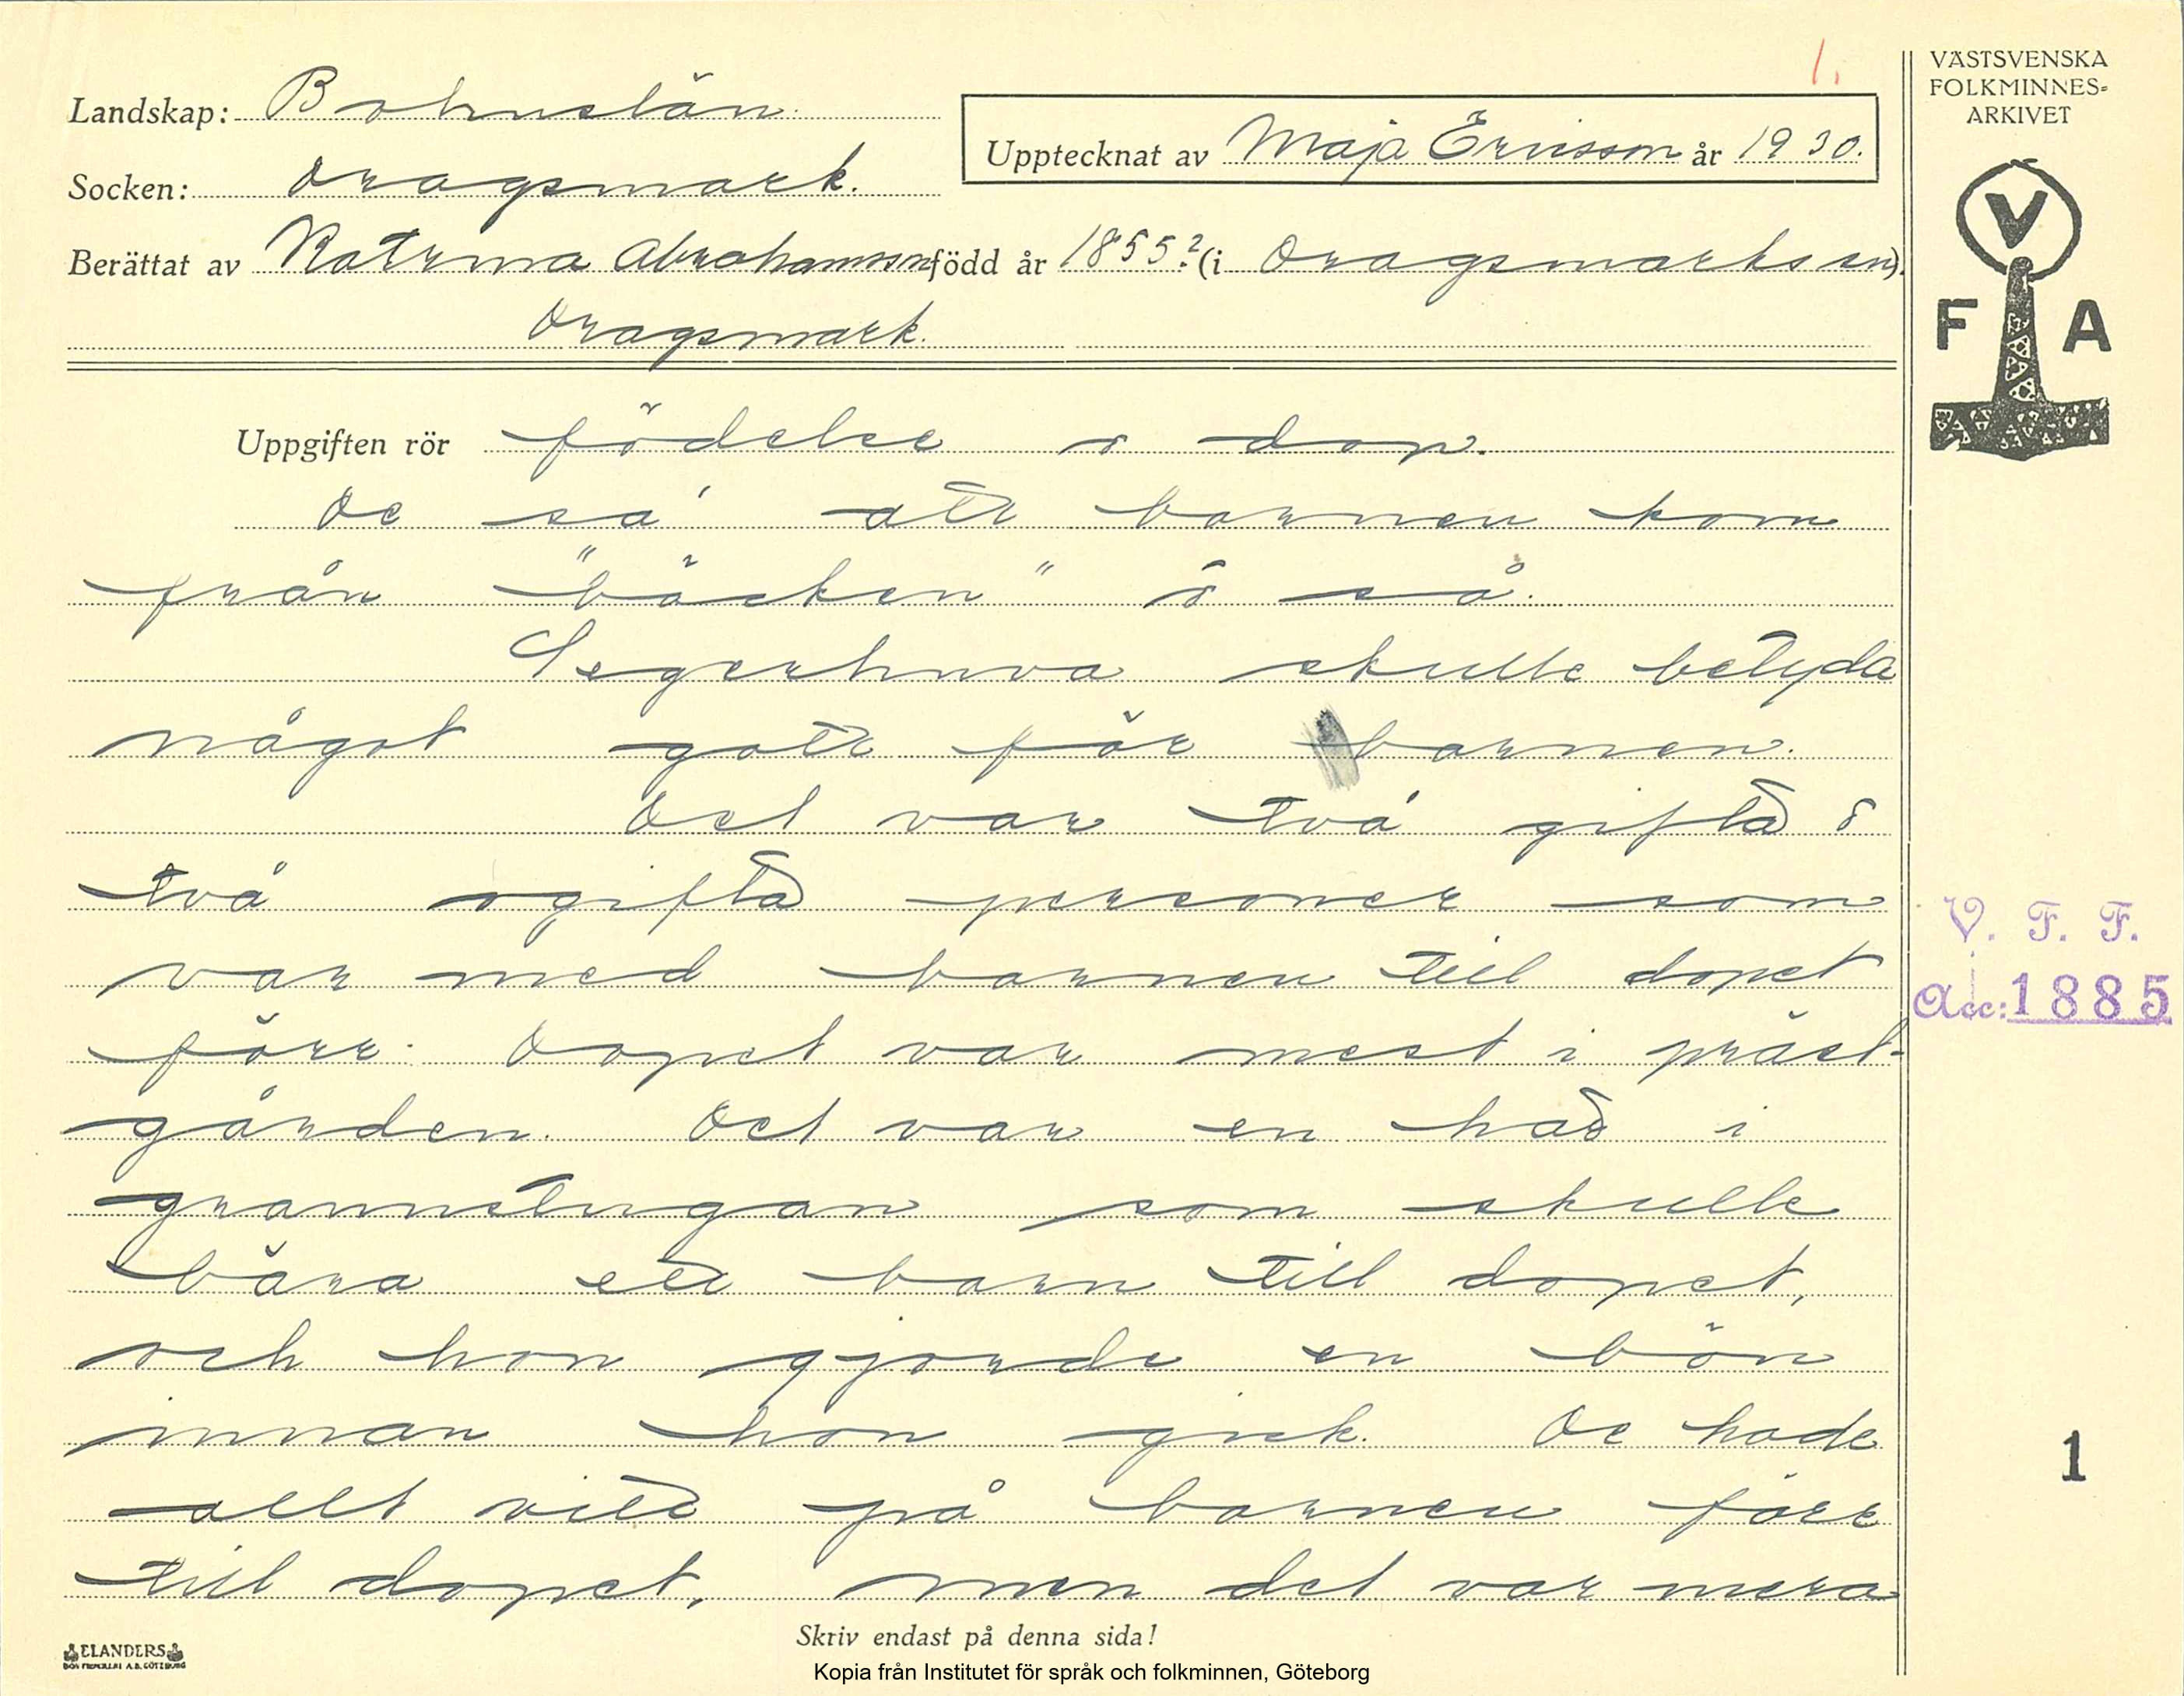 1.
VÄSTSVENSKA
FOLKMINNES-
ARKIVET
Landskap: Bohuslän.
Upptecknat av Maja Ericsson år 1930.
Socken: Dragsmark.
Berättat av Katrina Abrahamsson född år 1855? (i Dragsmarks sn).
Dragsmark.
V
F A
Uppgiften rör födelse o dop.
De sa' att barnen kom
från "bäcken" o så.
Segerhuva skulle betyda
något gott för barnen.
Det var två gifta o
två ogifta personer som
var med barnen till dopet
förr. Dopet var mest i präst-
gården. Det var en här i
grannstugan som skulle
bära ett barn till dopet,
och hon gjorde en bön
innan hon gick. De hade
allt vitt på barnen förr
till dopet, men det var mera
V. F. F.
Acc: 1885
1
Skriv endast på denna sida!
ELANDERS
Kopia från Institutet för språk och folkminnen, Göteborg